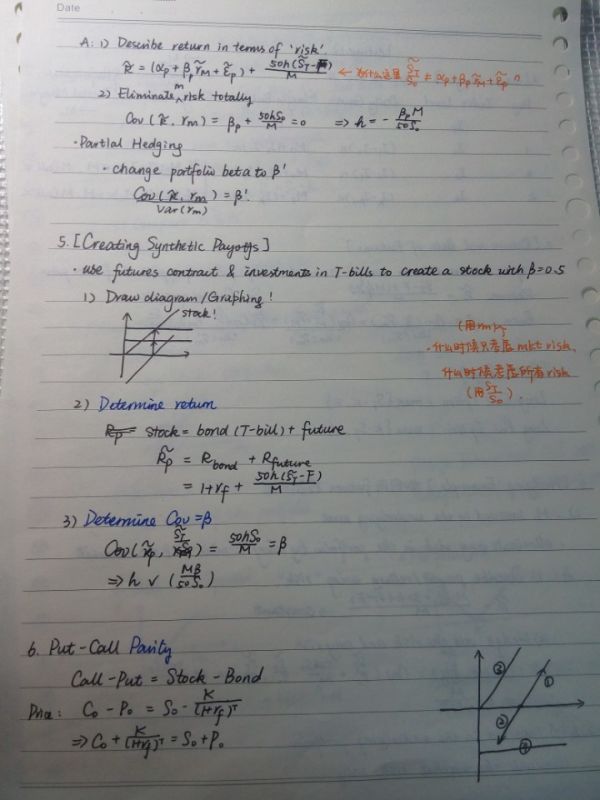 Date
A: 1) Describe return in terms of 'risk'.
r̃ = (αp + βp r̃M + ε̃p) + 50h(S̃T - F)/M ← 为什么这里 S̃T/S0 ≠ αp + βp r̃M + ε̃p ?
2) Eliminate m risk totally
Cov(r̃, rm) = βp + 50hS0/M = 0 ⇒ h = - βpM/50S0
· Partial Hedging
· change portfolio beta to β'
Cov(r̃, rm)/Var(rm) = β'
5. [Creating Synthetic Payoffs]
· use futures contract & investments in T-bills to create a stock with β=0.5
1) Draw diagram/Graphing!
stock!
(用rm)
· 什么时候只考虑 mkt risk,
什么时候考虑所有 risk
(用 ST/S0).
2) Determine return
Rp stock = bond (T-bill) + future
R̃p = Rbond + Rfuture
= 1+rf + 50h(S̃T-F)/M
3) Determine Cov = β
Cov(r̃p, S̃T/S0) = 50hS0/M = β
⇒ h √ (Mβ/50S0)
6. Put-Call Parity
Call-Put = Stock-Bond
Price: C0 - P0 = S0 - K/(1+rf)^T
⇒ C0 + K/(1+rf)^T = S0 + P0
③
①
②
④